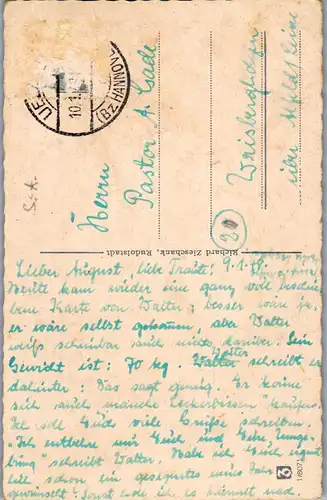 UEL
10.1.
(Bz HANNOV
Herrn
Pastor A. Lade
Wrisbergholzen
über Alfeld/Leine
20
S. A.
Richard Zieschank, Rudolstadt
Lieber August, liebe Traute! 9.1.
Heute kam wieder eine ganz voll beschrie
bene Karte von Walter; besser wäre ja,
er wäre selbst gekommen, aber Walter
weiß scheinbar auch nichts darüber. Sein
Gewicht ist: 70 kg. Walter schreibt er
dahinter: Das sagt genug. Er könne
sich auch manche Leckerbissen kaufen.
Ich soll Euch viele Grüße schreiben.
"Ich entbehre nur Euch und Eure Umge-
bung" schreibt Walter. Habe ich Euch eigent
lich schon ein gesegnetes neues Jahr
gewünscht? Sonst hole ich es hiermit nach